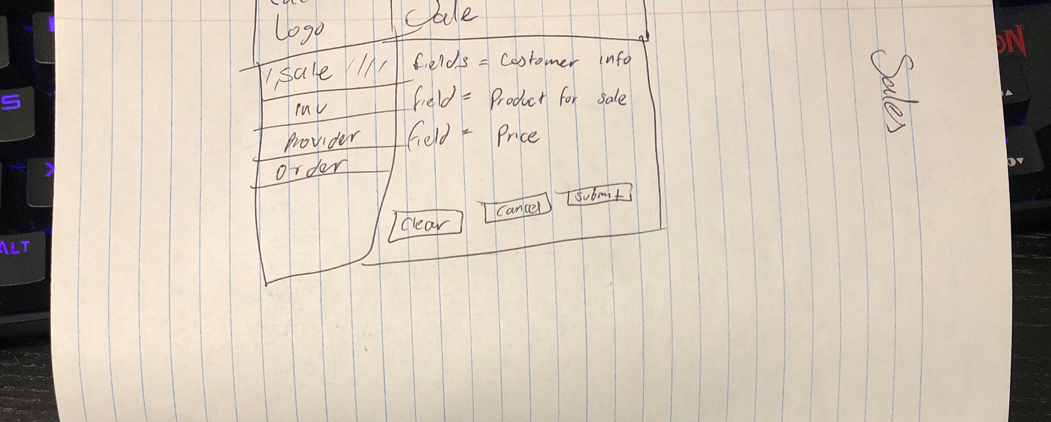 Logo
Sale
Sale
inv
Provider
Order
fields = Costomer info
field = Product for sale
field = Price
Clear
Cancel
Submit
Sales
S
X
ALT
ON